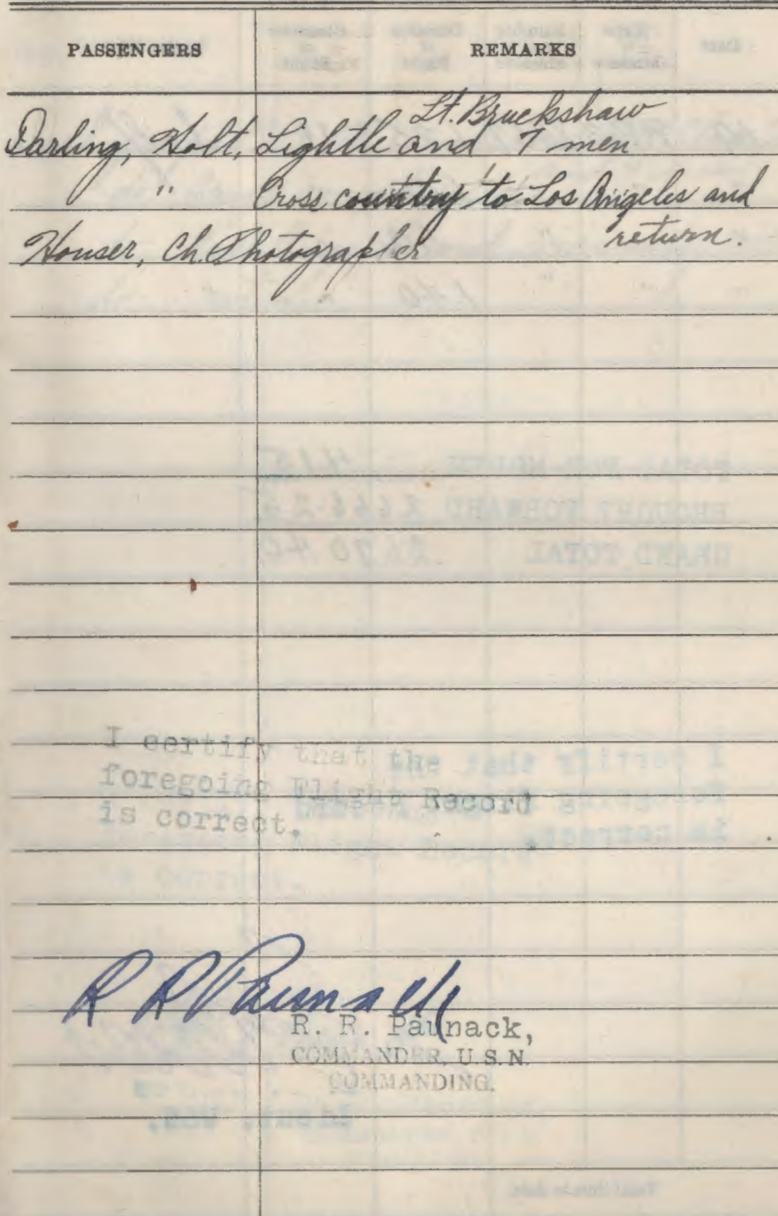 PASSENGERS REMARKS
Lt. Bruckshaw
Darling, Holt, Lightle and 7 men
" Cross country to Los Angeles and
Houser, Ch. Photographer return.
I certify that the
foregoing Flight Record
is correct.
R R Paunack
R. R. Paunack,
COMMANDER, U.S.N.
COMMANDING.